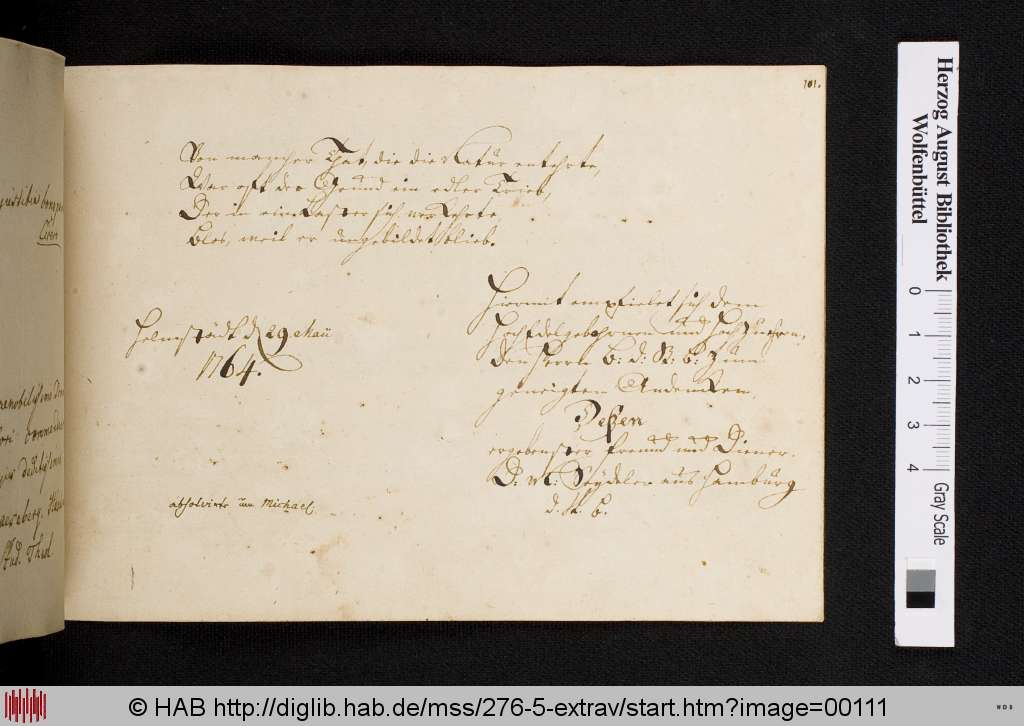 101.
Von mancher That, die die Natur entehrte,
War oft der Grund ein edler Trieb,
Der in ein Laster sich verkehrte,
Blos, weil er ungebildet blieb.
Helmstädt d 29 Maii
1764.
Hiermit empfielet sich dem
HochEdelgebohrnen und
den Herrn B: d: R. b: zum
geneigten Andenken.
Deßen
ergebenster Freund und Diener.
D: Seydeler aus Hamburg
d. R. b.
absolvirte um Michael.
Herzog August Bibliothek
Wolfenbüttel
0 1 2 3 4
Gray Scale
© HAB http://diglib.hab.de/mss/276-5-extrav/start.htm?image=00111
WDB